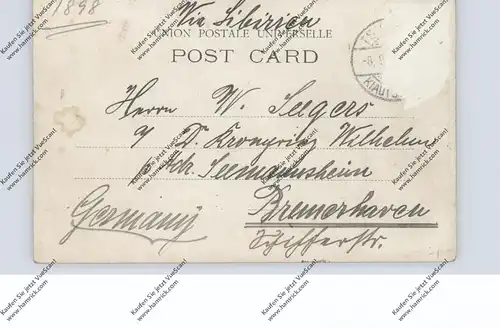 1898
Via Sibirien
UNION POSTALE UNIVERSELLE
POST CARD
Herrn W. Seegers
D. Kronprinz Wilhelm
Seemannsheim
Germany
Bremerhaven
Schifferstr.
Kaufen Sie jetzt VueScan!
www.hamrick.com